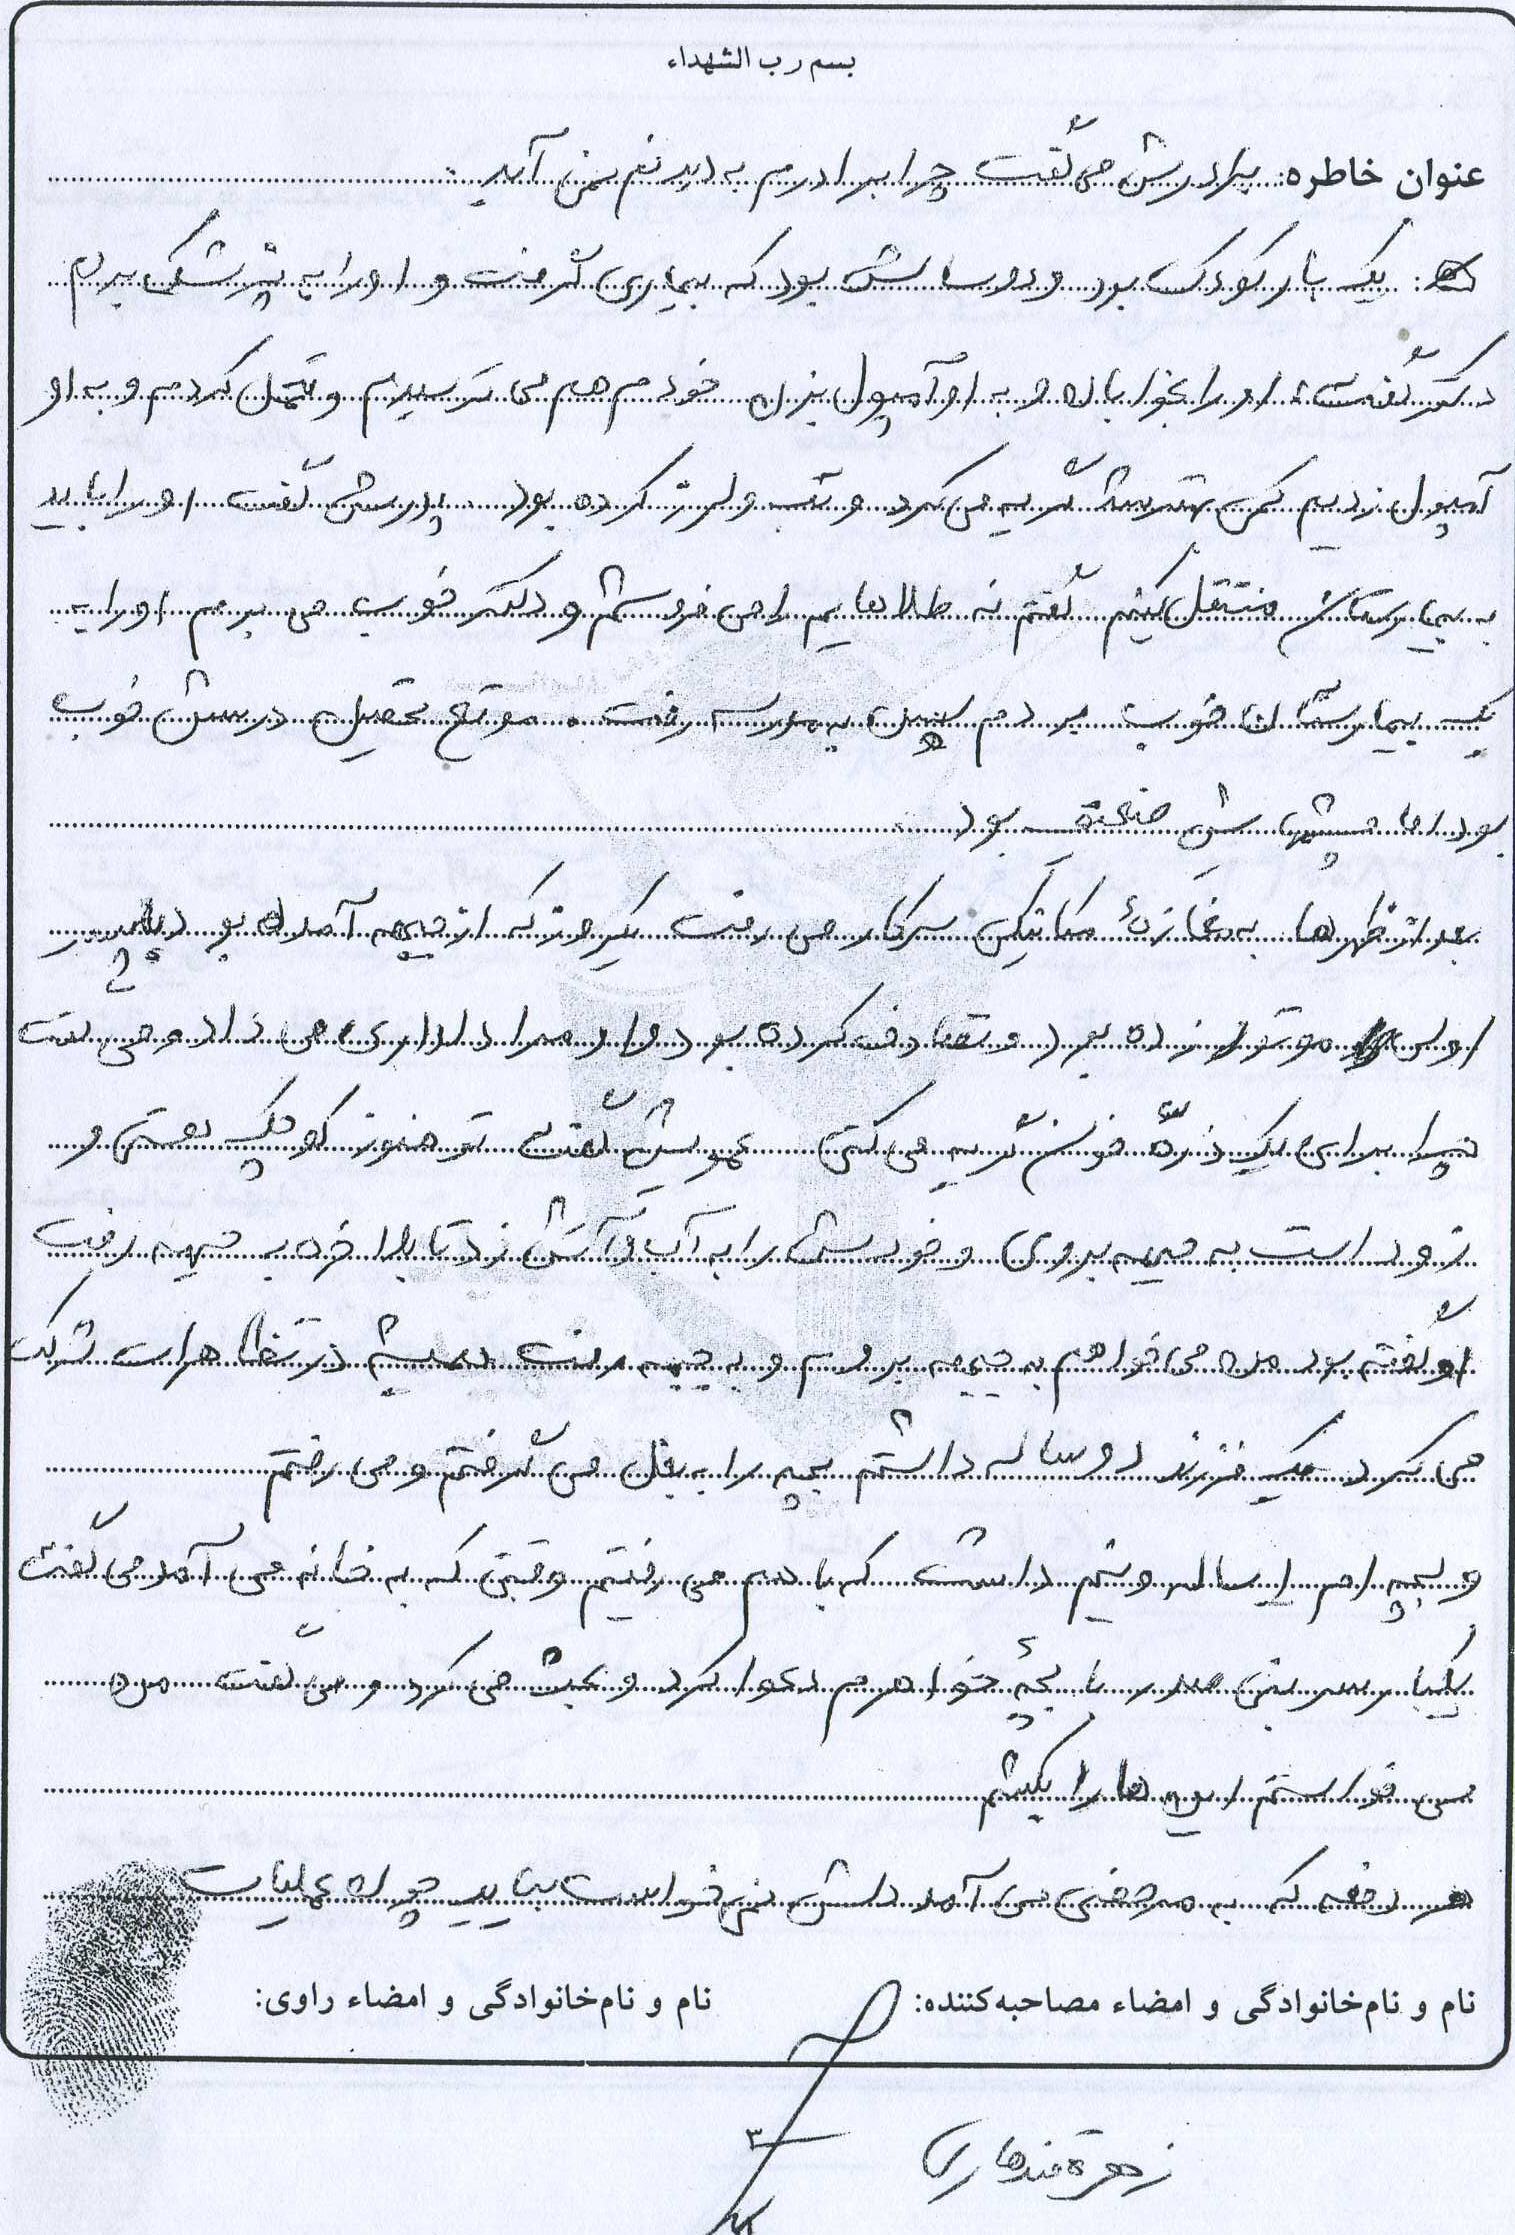 بسم رب الشهداء
عنوان خاطره: برادرش می گفت چرا برادرم به دیدنم نمی آید
یک بار کودک بود و دو سالش بود که بیماری گرفت و او را به پزشک بردم
دکتر گفت او را بخوابان و به او آمپول بزن خودم هم می ترسیدم و تحمل کردم و به او
آمپول زدیم کمی ترسش گریه می کرد و تب و لرز کرده بود پدرش گفت او را باید
به بیمارستان منتقل کنیم گفتم نه طلاهایم را می فروشم و دکتر خوب می برم او را به
یک بیمارستان خوب بردم سپس به مدرسه رفت. موقع تحصیل درسش خوب
بود اما چشمش ضعیف بود
بعد از ظهرها به مغازهٔ مکانیکی سر کار می رفت یکروز که از جبهه آمده بود پسر
اولی موتور زده بود و تصادف کرده بود و او مرا دلداری می داد و می گفت
چرا برای یک ذرّه خون گریه می کنی عمویش گفت تو هنوز کوچک هستی و
زود است به جبهه بروی و خودش را به آب و آتش زد تا بالاخره به جبهه رفت
او گفته بود من می خواهم به جبهه بروم و به جبهه رفت همیشه در تظاهرات شرکت
می کرد یک فرزند دو ساله داشتم بچه را به بغل می گرفتم و می رفتم
و بچه ام ۱ ساله و نیم داشت که با هم می رفتیم وقتی که به خانه می آمد می گفت
یکبار سر بنی صدر با بچهٔ خواهرم دعوا کرد و بحث می کرد و می گفت من
می خواستم این ها را بکشم
هر دفعه که به مرخصی می آمد دلش نمی خواست بیاید چون عملیات
نام و نام‌خانوادگی و امضاء مصاحبه‌کننده:
نام و نام‌خانوادگی و امضاء راوی:
زهره قندهاری
۳